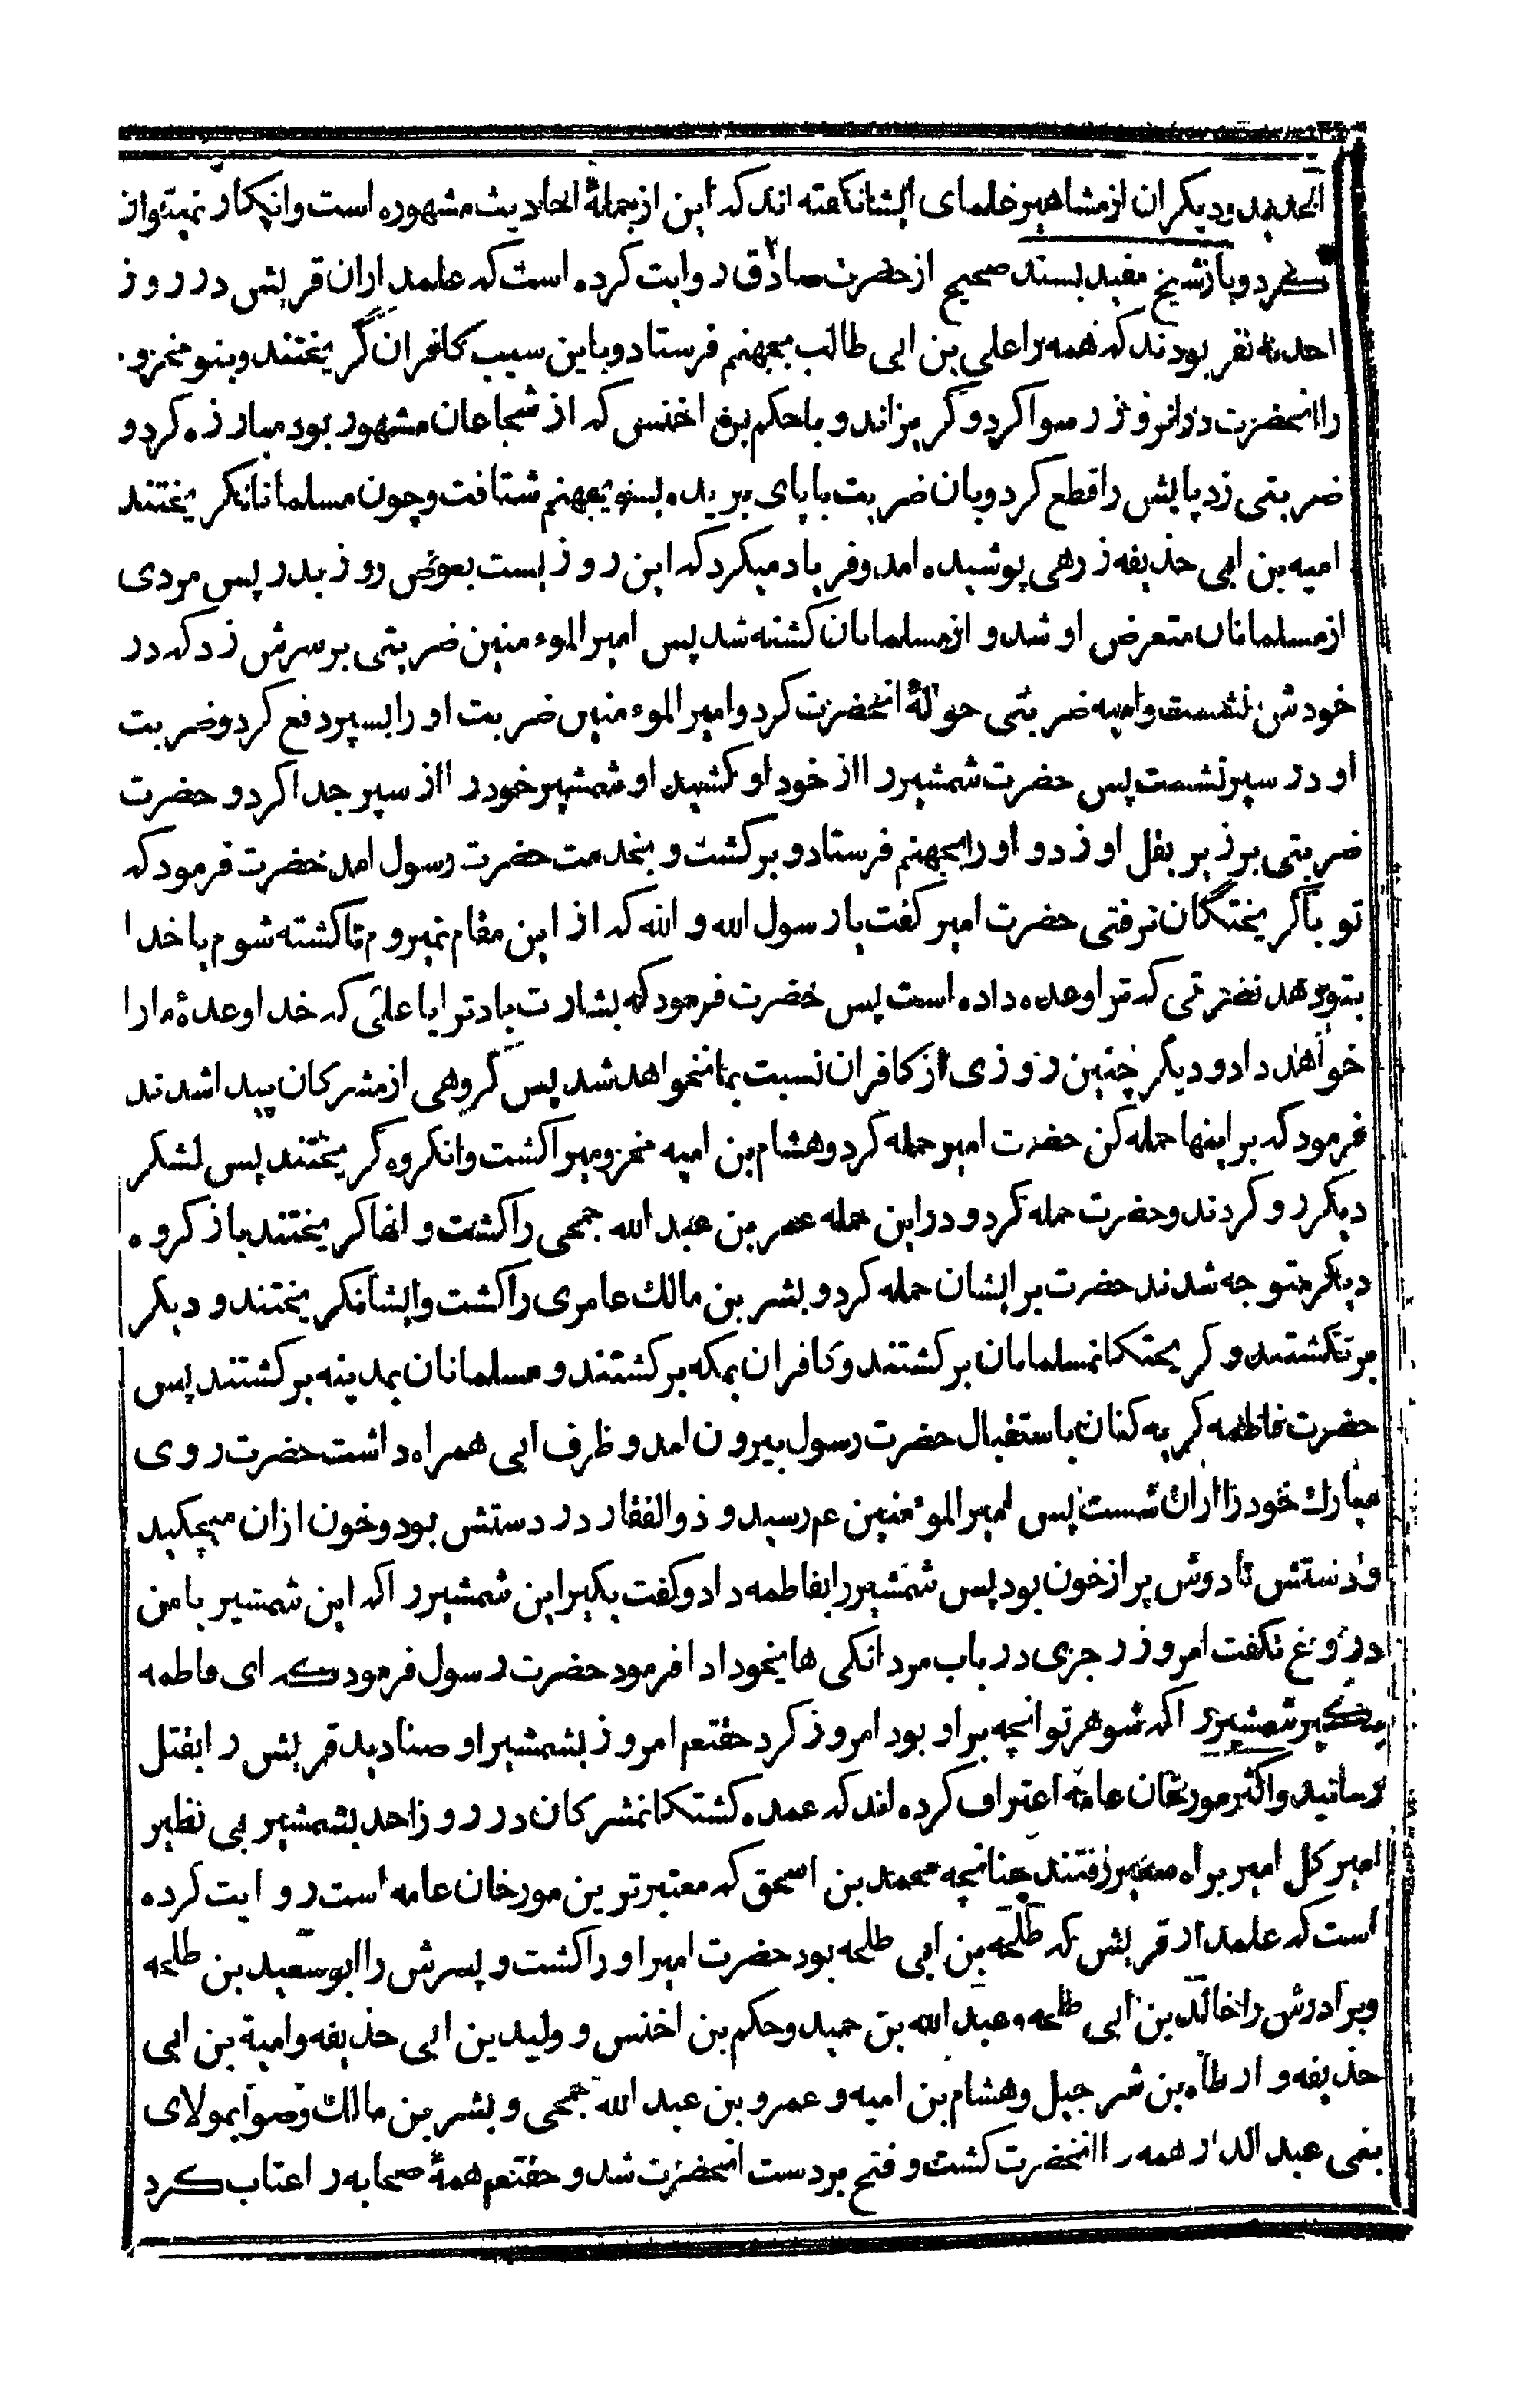 الحدید و دیکران از مشاهیر علمای ایشان کفته اند که این از جملهٔ احادیث مشهوره است و انکار نمیتوان
کرد و باز شیخ مفید بسند صحیح از حضرت صادق روایت کرده است که علمداران قریش در روز
احد نه نفر بودند که همه را علی بن ابی طالب بجهنم فرستاد و باین سبب کافران گریختند و بنو مخزو
را انحضرت در انروز رسوا کرد و گریزاند و با حکم بن اخنس که از شجاعان مشهور بود مبارزه کرد و
ضربتی زد پایش را قطع کرد و بان ضربت با پای بریده بسوی جهنم شتافت و چون مسلمانان کریختند
امیه بن ابی حذیفه زرهی پوشیده امد و فریاد میکرد که این روزیست بعوض روز بدر پس مردی
از مسلمانان متعرض او شد و از مسلمانان کشته شد پس امیر الموءمنین ضربتی بر سرش زد که در
خودش نشست و امیه ضربتی حوالهٔ انحضرت کرد و امیر الموءمنین ضربت او را بسپر دفع کرد و ضربت
او در سپر نشست پس حضرت شمشیر را از خود او کشید او شمشیر خود را از سپر جدا کرد و حضرت
ضربتی بر زیر بغل او زد و او را بجهنم فرستاد و برکشت و بخدمت حضرت رسول امد حضرت فرمود که
تو با گریختگان نرفتی حضرت امیر کفت یا رسول الله و الله که از این مقام نمیروم تا کشته شوم یا خدا
بتو دهد نصرتی که ترا وعده داده است پس حضرت فرمود که بشارت باد ترا یا علی که خدا وعدهٔ ما را
خواهد داد و دیگر چنین روزی از کافران نسبت بما نخواهد شد پس گروهی از مشرکان پیدا شدند
فرمود که بر اینها حمله کن حضرت امیر حمله کرد و هشام بن امیه مخزومیرا کشت و انکروه گریختند پس لشکر
دیکر رو کردند و حضرت حمله کرد و در این حمله عمر بن عبد الله جمحی را کشت و انها کریختند باز کروه
دیکر متوجه شدند حضرت بر ایشان حمله کرد و بشر بن مالک عامری را کشت و ایشان کریختند و دیکر
برنکشتند و کریختکان مسلمانان برکشتند و کافران بمکه برکشتند و مسلمانان بمدینه برکشتند پس
حضرت فاطمه کریه کنان باستقبال حضرت رسول بیرون امد و ظرف ابی همراه داشت حضرت روی
مبارک خود را از ان شست پس امیر المؤمنین عم رسید و ذوالفقار در دستش بود و خون از ان میچکید
و دستش تا دوش پر از خون بود پس شمشیر را بفاطمه داد و کفت بکیر این شمشیر را که این شمشیر با من
دروغ نکفت امروز رجزی در باب مردانکی های خود ادا فرمود حضرت رسول فرمود که ای فاطمه
بکیر شمشیر را که شوهر تو انچه بر او بود امروز کرد حقتعم امروز بشمشیر او صنادید قریش را بقتل
رسانید و اکثر مورخان عامه اعتراف کرده اند که عمده کشتکان مشرکان در روز احد بشمشیر بی نظیر
امیر کل امیر براه سعیر رفتند چنانچه محمد بن اسحق که معتبرترین مورخان عامه است روایت کرده
است که علمدار قریش که طلحه بن ابی طلحه بود حضرت امیر او را کشت و پسرش را ابو سعید بن طلحه
و برادرش را خالد بن ابی طلحه و عبد الله بن حمید و حکم بن اخنس و ولید بن ابی حذیفه و امیة بن ابی
حذیفه و ارطاه بن شرجبیل و هشام بن امیه و عمرو بن عبد الله جمحی و بشر بن مالک و صواب مولای
بنی عبد الدار همه را انحضرت کشت و فتح بر دست انحضرت شد و حقتعم همهٔ صحابه را عتاب کرد